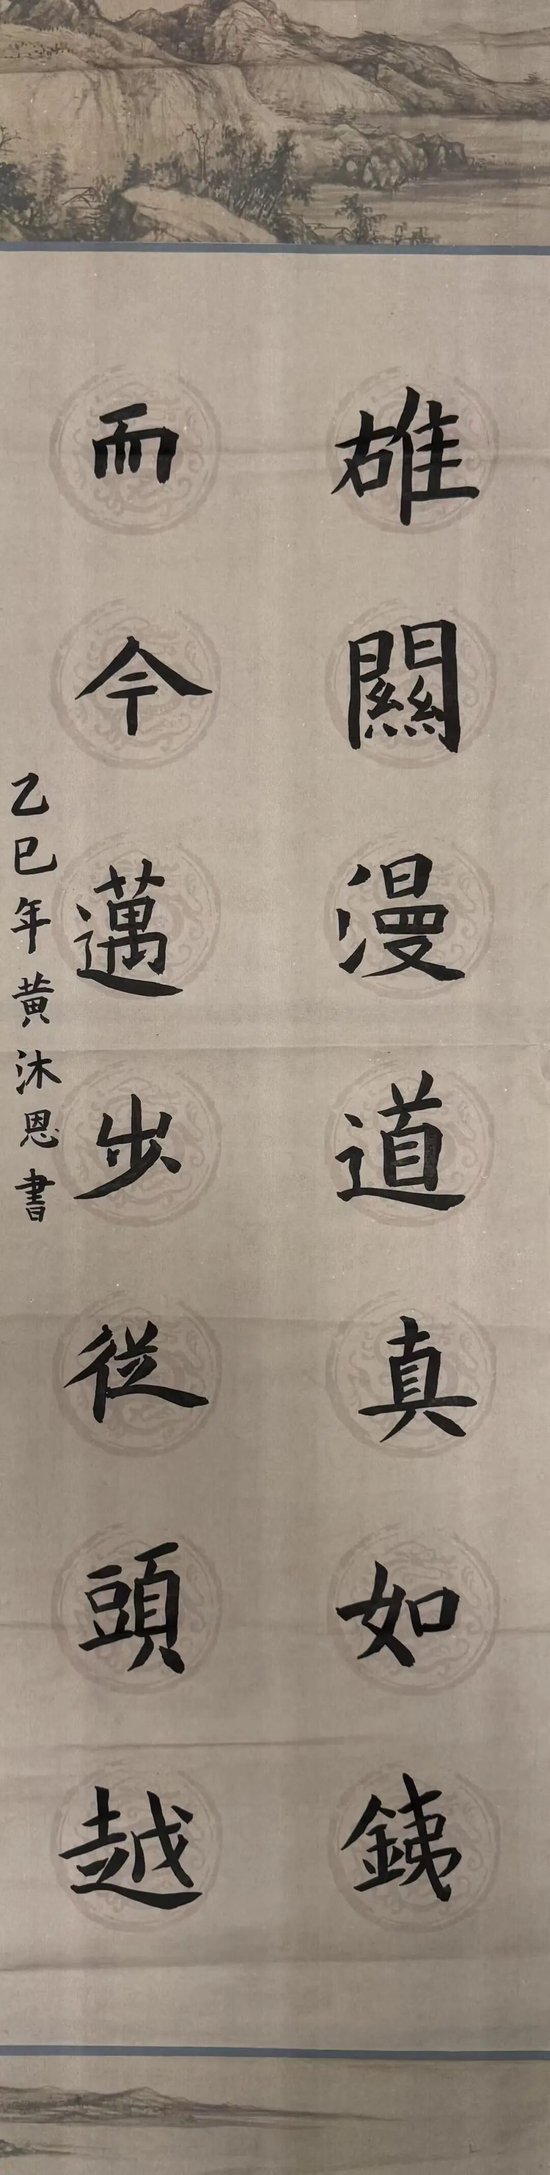 雄關漫道真如銕
而今邁步從頭越
乙巳年黄沐恩書